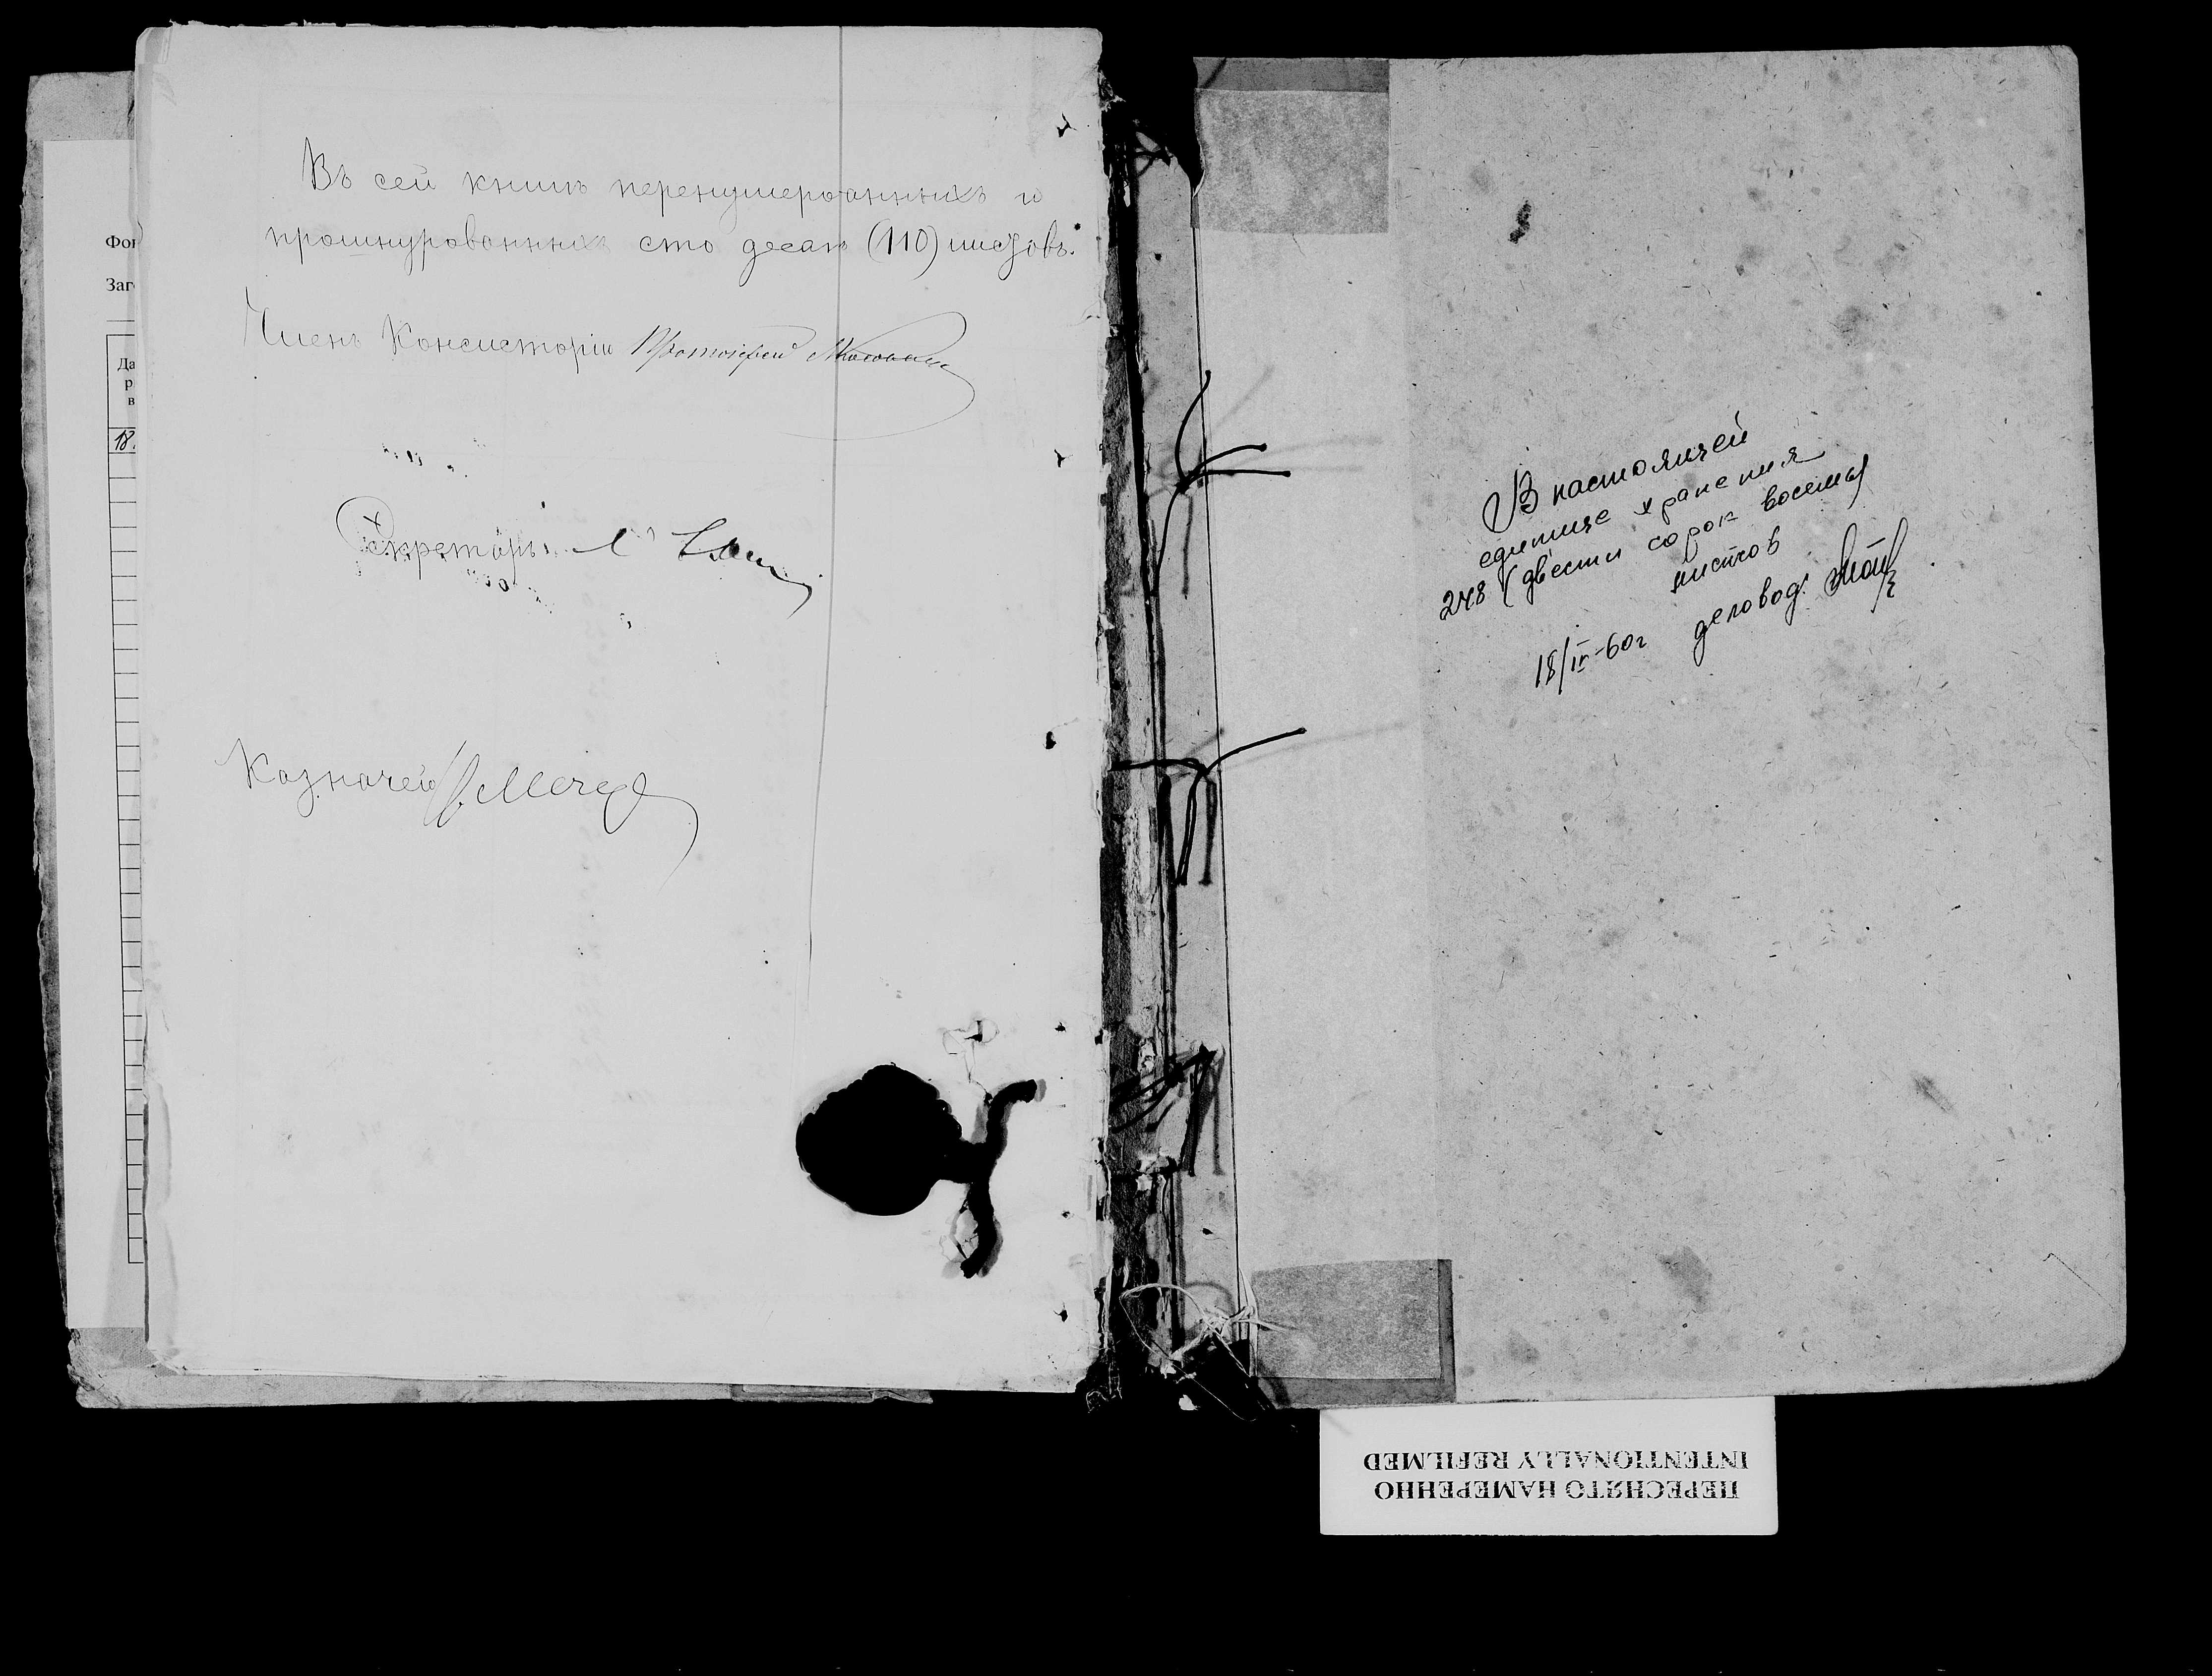 Въ сей книгѣ перенумерованныхъ и
прошнурованныхъ сто десять (110) листовъ.
Членъ Консисторіи Протоіерей
Секретарь
Казначей
Фон
Заг
Да
р
в
18
В настоящей
единице хранения
248 (двести сорок восемь)
листов
18/IV-60г деловод.
ПЕРЕСНЯТО НАМЕРЕННО
INTENTIONALLY REFILMED